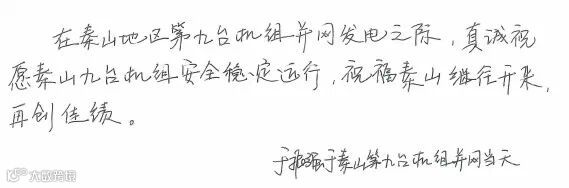 在秦山地区第九台机组并网发电之际，真诚祝
愿秦山九台机组安全稳定运行，祝福秦山继往开来，
再创佳绩。
于秦山第九台机组并网当天
大鹏热线